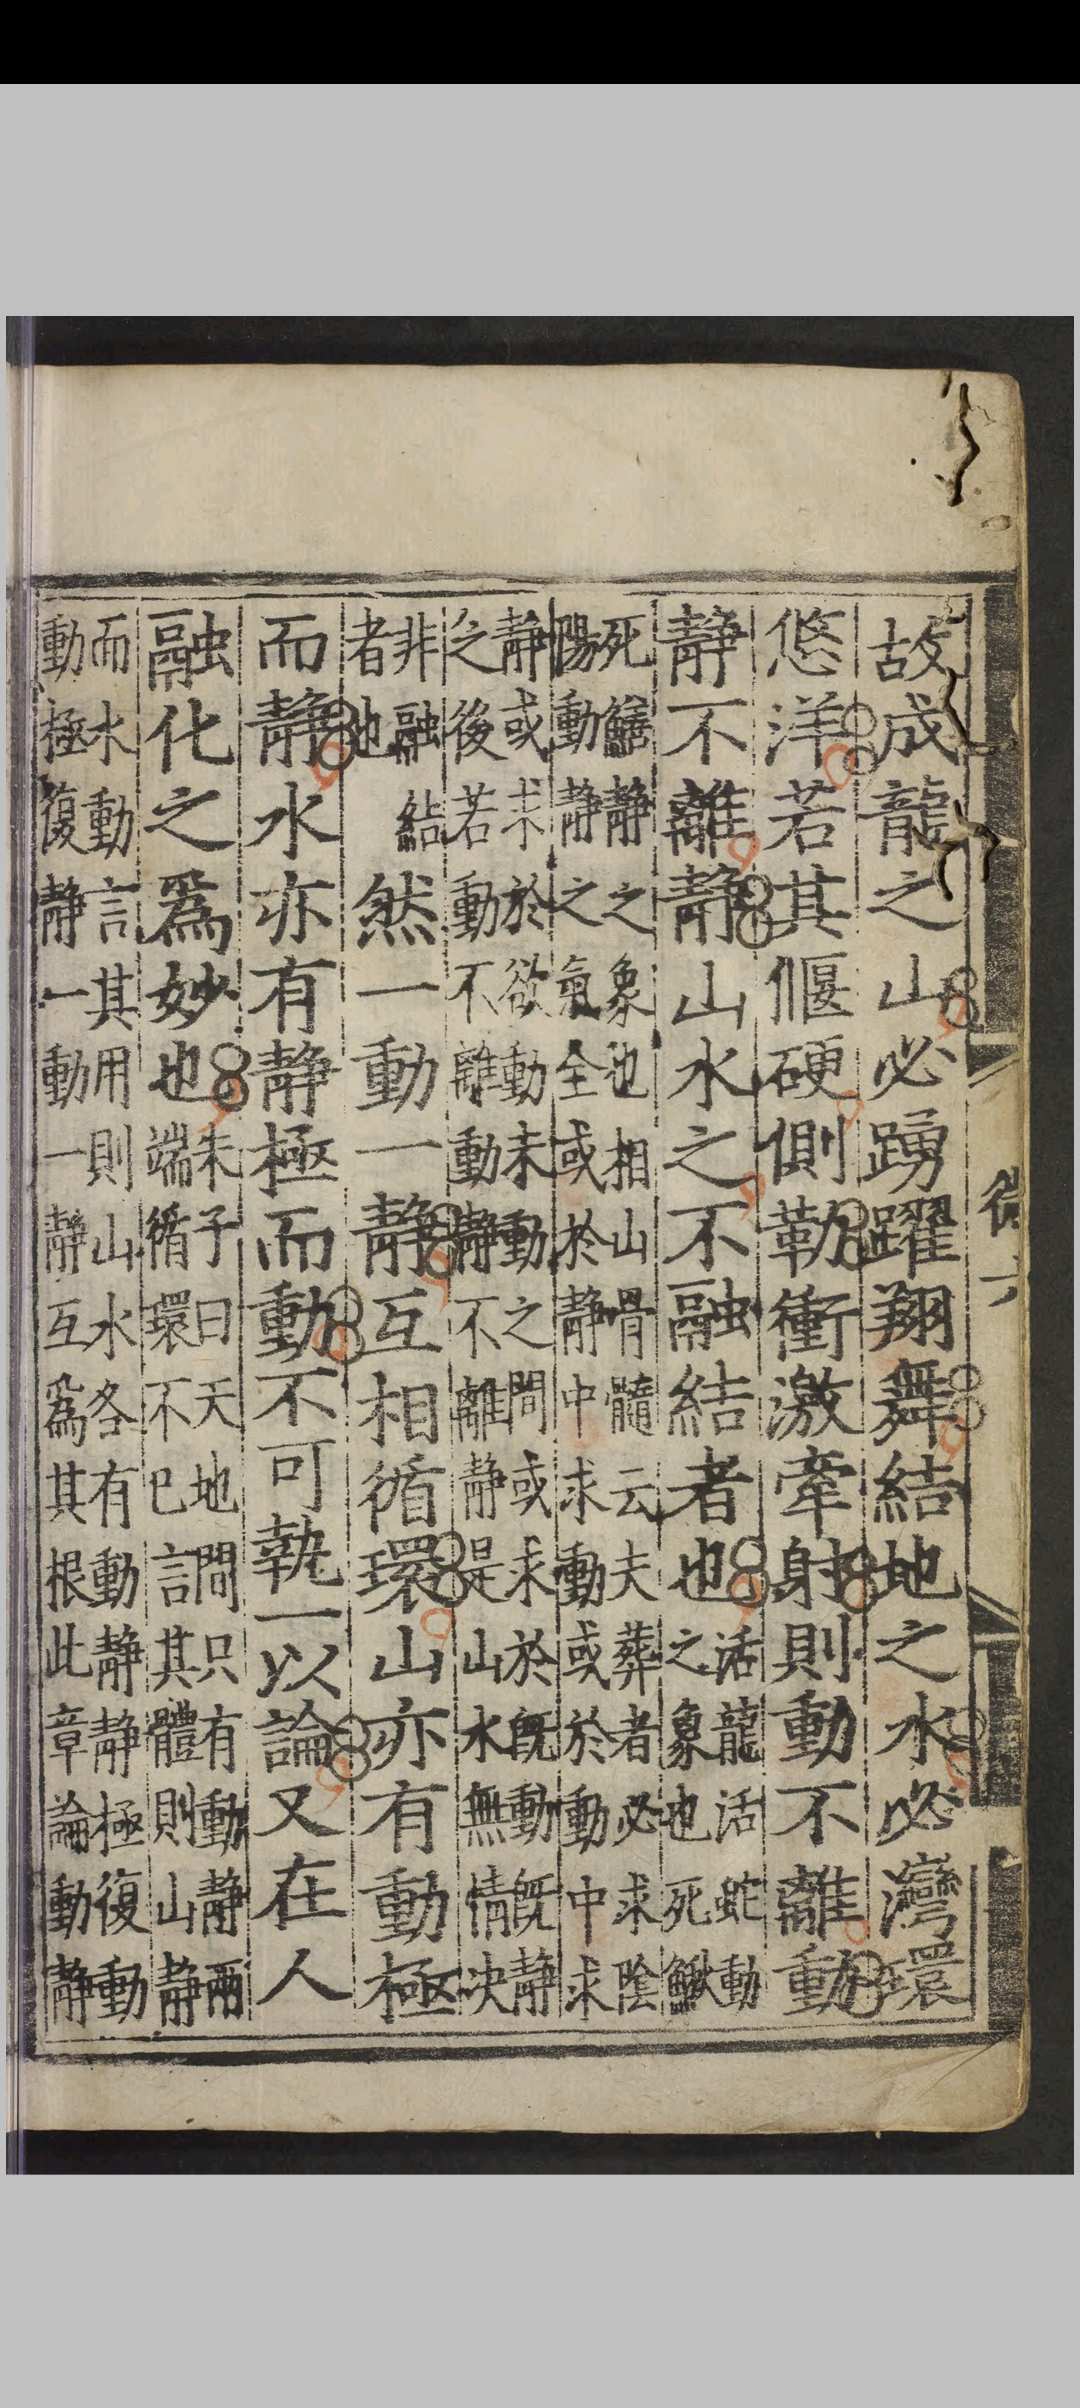 故成龍之山必踴躍翔舞結地之水必灣環
悠洋若其偃硬側勒衝激牽射則動不離動
靜不離靜山水之不融結者也活龍活蛇動
之象也死鰍
死鱔靜之象也相山骨髓云夫葬者必求陰
陽動靜之氣全或於靜中求動或於動中求
靜或求於欲動未動之間或求於既動既靜
之後若動不離動靜不離靜是山水無情決
非融結
者也
然一動一靜互相循環山亦有動極
而靜水亦有靜極而動不可執一以論又在人
融化之爲妙也朱子曰天地間只有動靜兩
端循環不已言其體則山靜
而水動言其用則山水各有動靜靜極復動
動極復靜一動一靜互爲其根此章論動靜